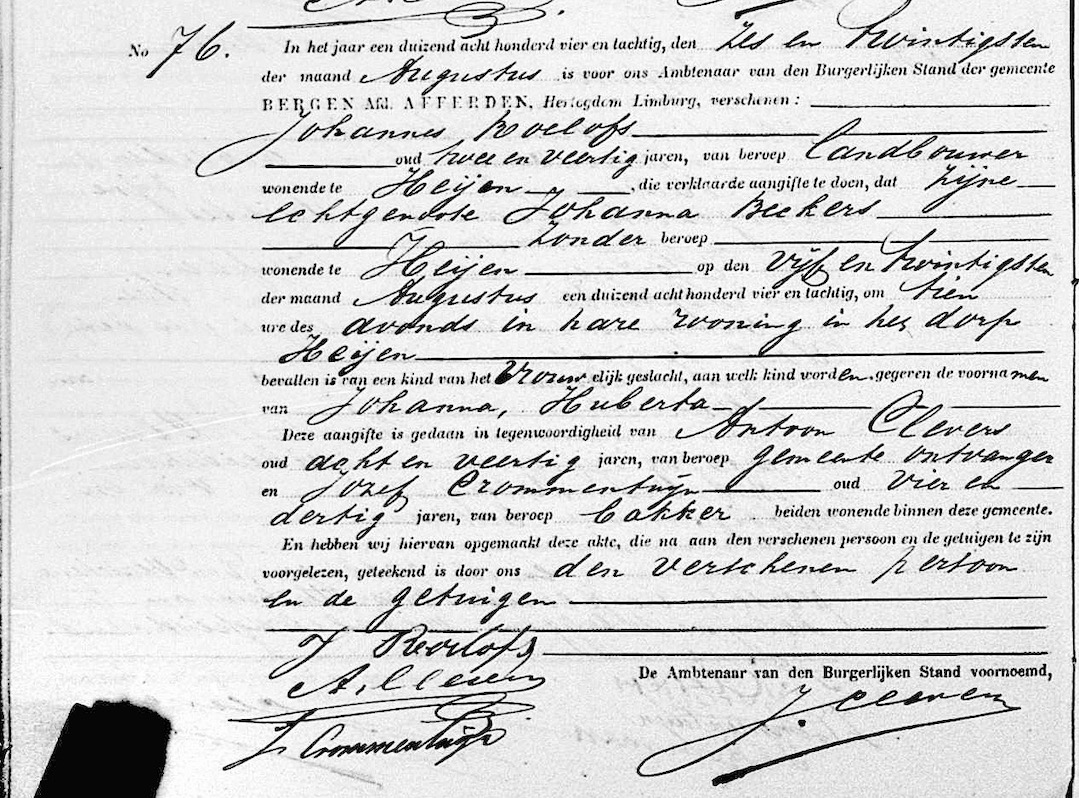 No 76. In het jaar een duizend acht honderd vier en tachtig, den zes en twintigsten
der maand Augustus is voor ons Ambtenaar van den Burgerlijken Stand der gemeente
BERGEN Afd. AFFERDEN, Hertogdom Limburg, verschenen:
Johannes Roelofs
oud twee en veertig jaren, van beroep landbouwer
wonende te Heijen, die verklaarde aangifte te doen, dat zijne
echtgenoote Johanna Beckers
zonder beroep
wonende te Heijen op den vijf en twintigsten
der maand Augustus een duizend acht honderd vier en tachtig, om tien
ure des avonds in hare woning in het dorp
Heijen
bevallen is van een kind van het vrouwelijk geslacht, aan welk kind worden gegeven de voornamen
van Johanna, Huberta
Deze aangifte is gedaan in tegenwoordigheid van Antoon Clevers
oud acht en veertig jaren, van beroep gemeente ontvanger
en Jozef Crommentuijn oud vier en
dertig jaren, van beroep bakker beiden wonende binnen deze gemeente.
En hebben wij hiervan opgemaakt deze akte, die na aan den verschenen persoon en de getuigen te zijn
voorgelezen, geteekend is door ons den verschenen persoon
en de getuigen
J Roelofs
De Ambtenaar van den Burgerlijken Stand voornoemd,
J. Crommentuijn